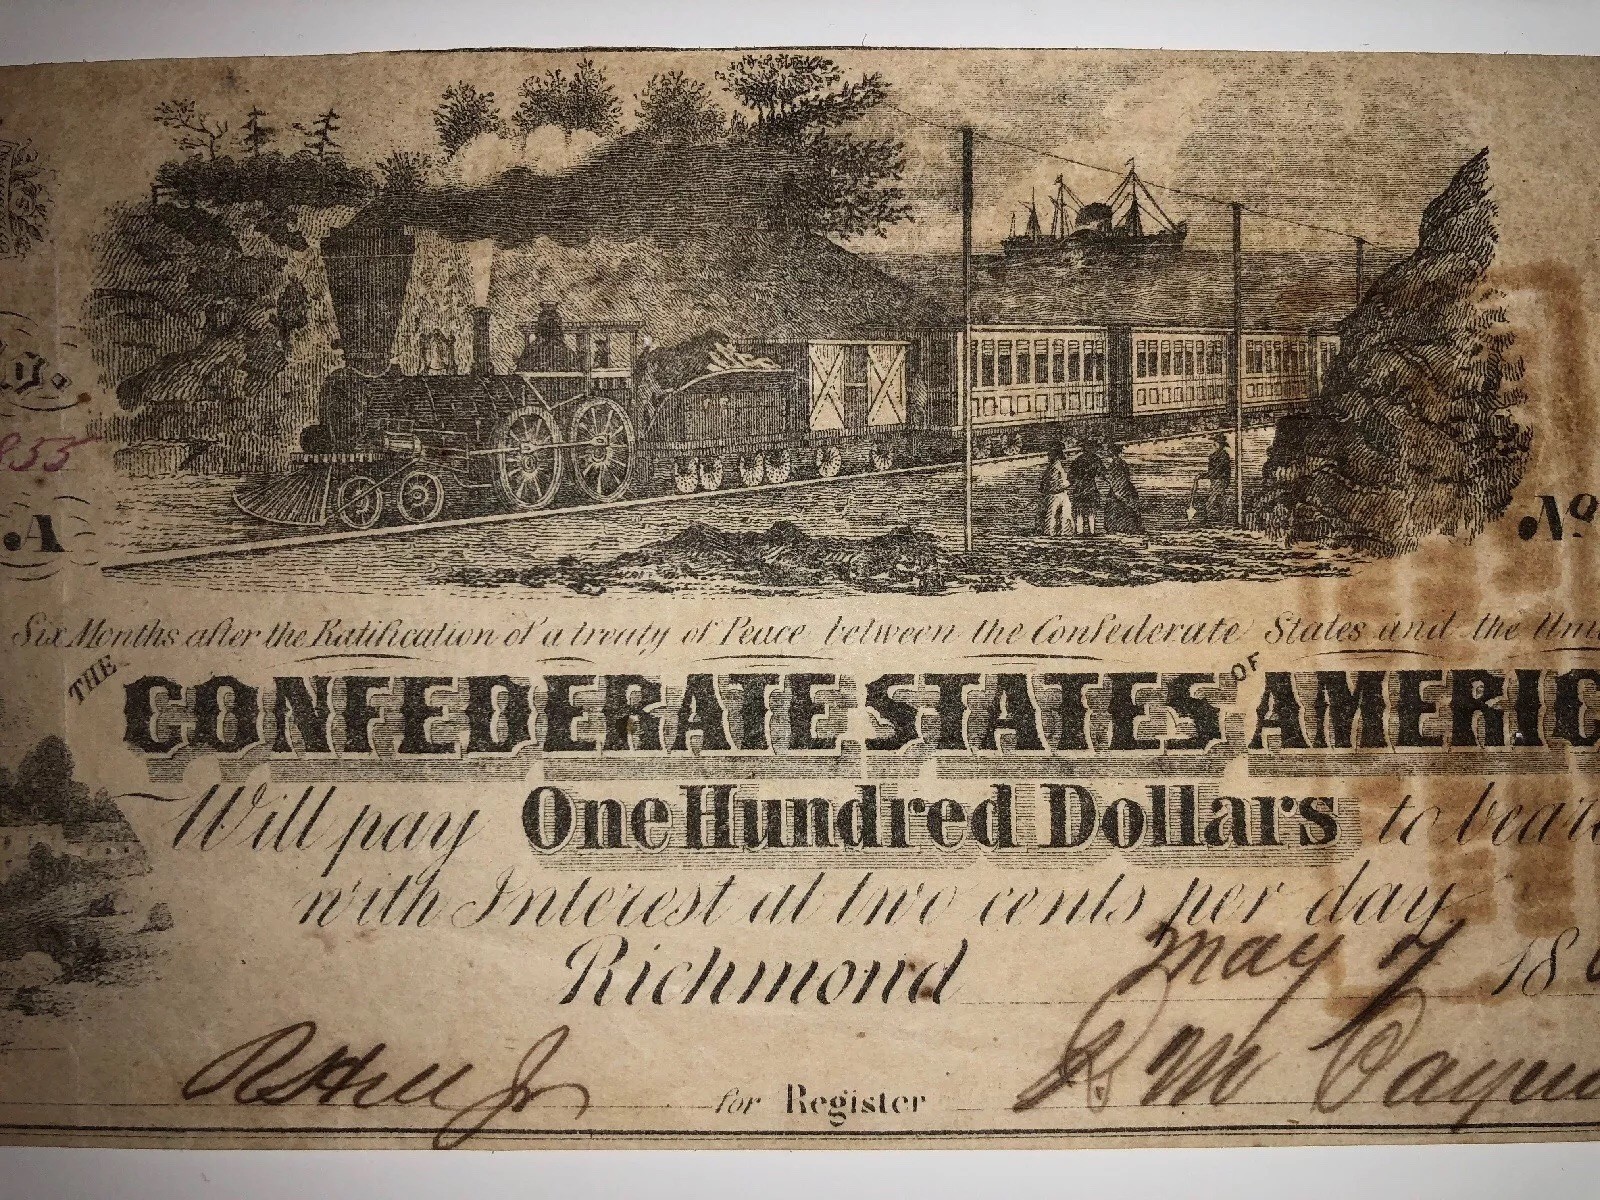 855
A
No
Six Months after the Ratification of a treaty of Peace between the Confederate States and the Uni
THE CONFEDERATE STATES OF AMERIC
Will pay One Hundred Dollars to beare
with Interest at two cents per day
Richmond May 7 186
R Hill Jr for Register S M Payne